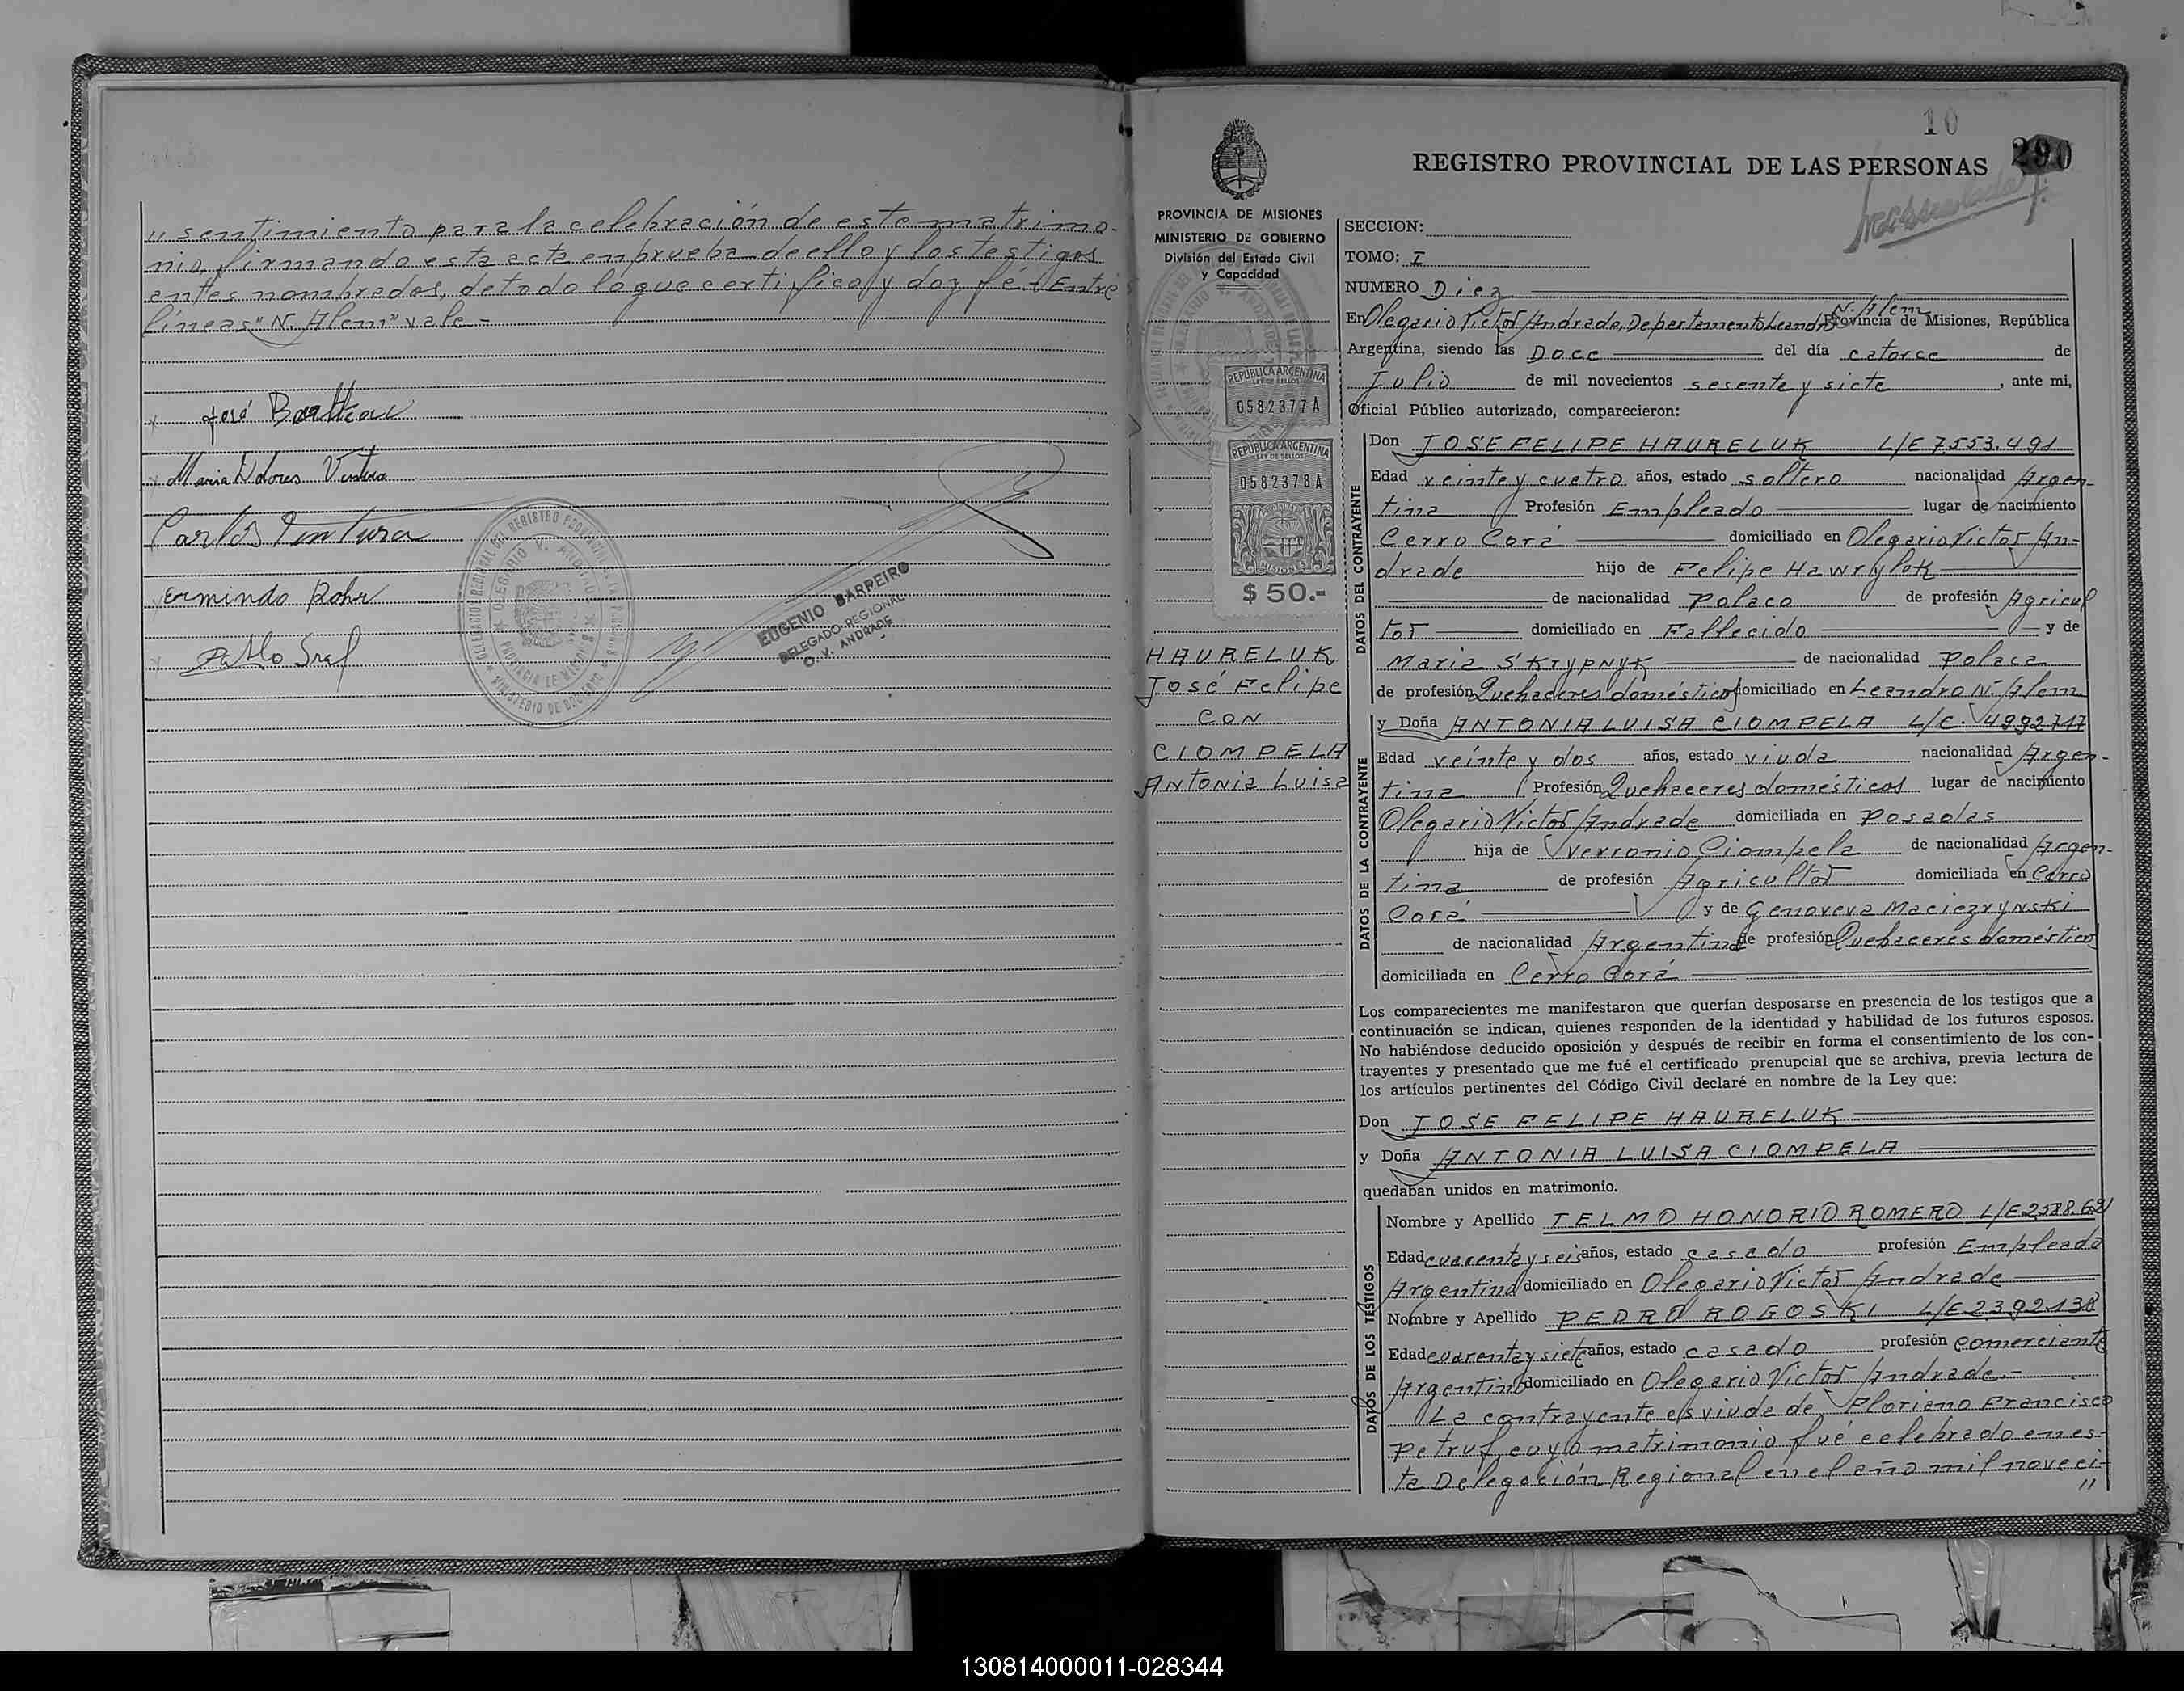 " sentimiento para la celebración de este matrimo-
nio, firmando esta acta en prueba de ello y los testigos
antes nombrados, de todo lo que certifico y doy fé.- Entre
líneas "N. Alem" vale.-
José
Maria Dolores Ventura
Carlos Ventura
Ermindo Rohr
Pablo Sraf
DELEGACION REGIONAL DEL REGISTRO PROVINCIAL DE LAS PERSONAS
OLEGARIO V. ANDRADE
PROVINCIA DE MISIONES
MINISTERIO DE GOBIERNO
EUGENIO BARREIRO
DELEGADO REGIONAL
O. V. ANDRADE
10
290
REGISTRO PROVINCIAL DE LAS PERSONAS
PROVINCIA DE MISIONES
MINISTERIO DE GOBIERNO
División del Estado Civil
y Capacidad
REPUBLICA ARGENTINA
LEY DE SELLOS
0582377A
REPUBLICA ARGENTINA
LEY DE SELLOS
0582378A
MISIONES
$ 50.-
HAURELUK
José Felipe
CON
CIOMPELA
Antonia Luisa
SECCION:
TOMO: I
NUMERO Diez
N. Alem
En Olegario Victor Andrade, Departamento Leandro Provincia de Misiones, República
Argentina, siendo las Doce del día catorce de
Julio de mil novecientos sesenta y siete, ante mi,
Oficial Público autorizado, comparecieron:
DATOS DEL CONTRAYENTE
Don JOSE FELIPE HAURELUK L/E 7553.491
Edad veinte y cuatro años, estado soltero nacionalidad Argen-
tina Profesión Empleado lugar de nacimiento
Cerro Corá domiciliado en Olegario Victor An-
drade hijo de Felipe Hawryluk
de nacionalidad Polaco de profesión Agricul
tor domiciliado en Fallecido y de
Maria Skrypnyk de nacionalidad Polaca
de profesión Quehaceres domésticos domiciliado en Leandro N. Alem
DATOS DE LA CONTRAYENTE
y Doña ANTONIA LUISA CIOMPELA L/C. 4992717
Edad veinte y dos años, estado viuda nacionalidad Argen-
tina Profesión Quehaceres domésticos lugar de nacimiento
Olegario Victor Andrade domiciliada en Posadas
hija de Verronio Ciompela de nacionalidad Argen-
tina de profesión Agricultor domiciliada en Cerro
Corá y de Genoveva Maciezrynski
de nacionalidad Argentina de profesión Quehaceres domésticos
domiciliada en Cerro Corá
Los comparecientes me manifestaron que querían desposarse en presencia de los testigos que a
continuación se indican, quienes responden de la identidad y habilidad de los futuros esposos.
No habiéndose deducido oposición y después de recibir en forma el consentimiento de los con-
trayentes y presentado que me fué el certificado prenupcial que se archiva, previa lectura de
los artículos pertinentes del Código Civil declaré en nombre de la Ley que:
Don JOSE FELIPE HAURELUK
y Doña ANTONIA LUISA CIOMPELA
quedaban unidos en matrimonio.
DATOS DE LOS TESTIGOS
Nombre y Apellido TELMO HONORIO ROMERO
Edad cuarenta y seis años, estado casado profesión Empleado
Argentino domiciliado en Olegario Victor Andrade
Nombre y Apellido PEDRO ROGOSKI L/E 2392138
Edad cuarenta y siete años, estado casado profesión comerciante
Argentino domiciliado en Olegario Victor Andrade.-
La contrayente es viuda de Floriano Francisco
Petruf, cuyo matrimonio fué celebrado en es-
ta Delegación Regional en el año mil noveci-
"
130814000011-028344